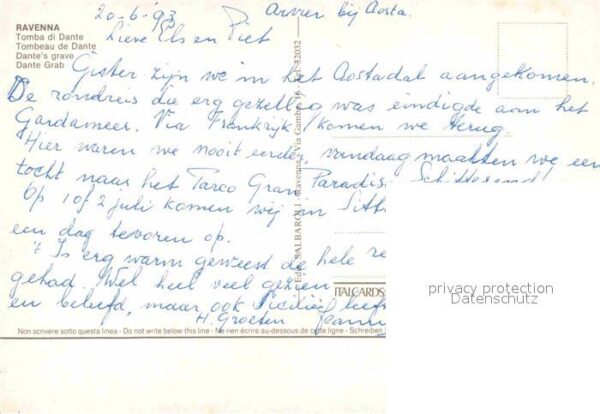 RAVENNA
Tomba di Dante
Tombeau de Dante
Dante's grave
Dante Grab
20-6-'93 Arvier bij Aosta.
Lieve Els en Piet
Gister zijn we in het Aostadal aangekomen.
De rondreis die erg gezellig was eindigde aan het
Gardameer. Via Frankrijk komen we terug.
Hier waren we nooit eerder, vandaag maakten we een
tocht naar het Parco Gran Paradiso. Schitterend!
Op 1 of 2 juli komen wij in Sitt
een dag tevoren op.
't Is erg warm geweest de hele re
gehad. Wel heel veel gezien
en beleefd, maar ook Sicilië heef
H. Groeten Jeann
Ediz. SALBAROLI - Ravenna - Via Gamba, 16 - Tel. 32032
ITALCARDS
privacy protection
Datenschutz
Non scrivere sotto questa linea - Do not write below this line - Ne rien écrire au-dessous de cette ligne - Schreiben